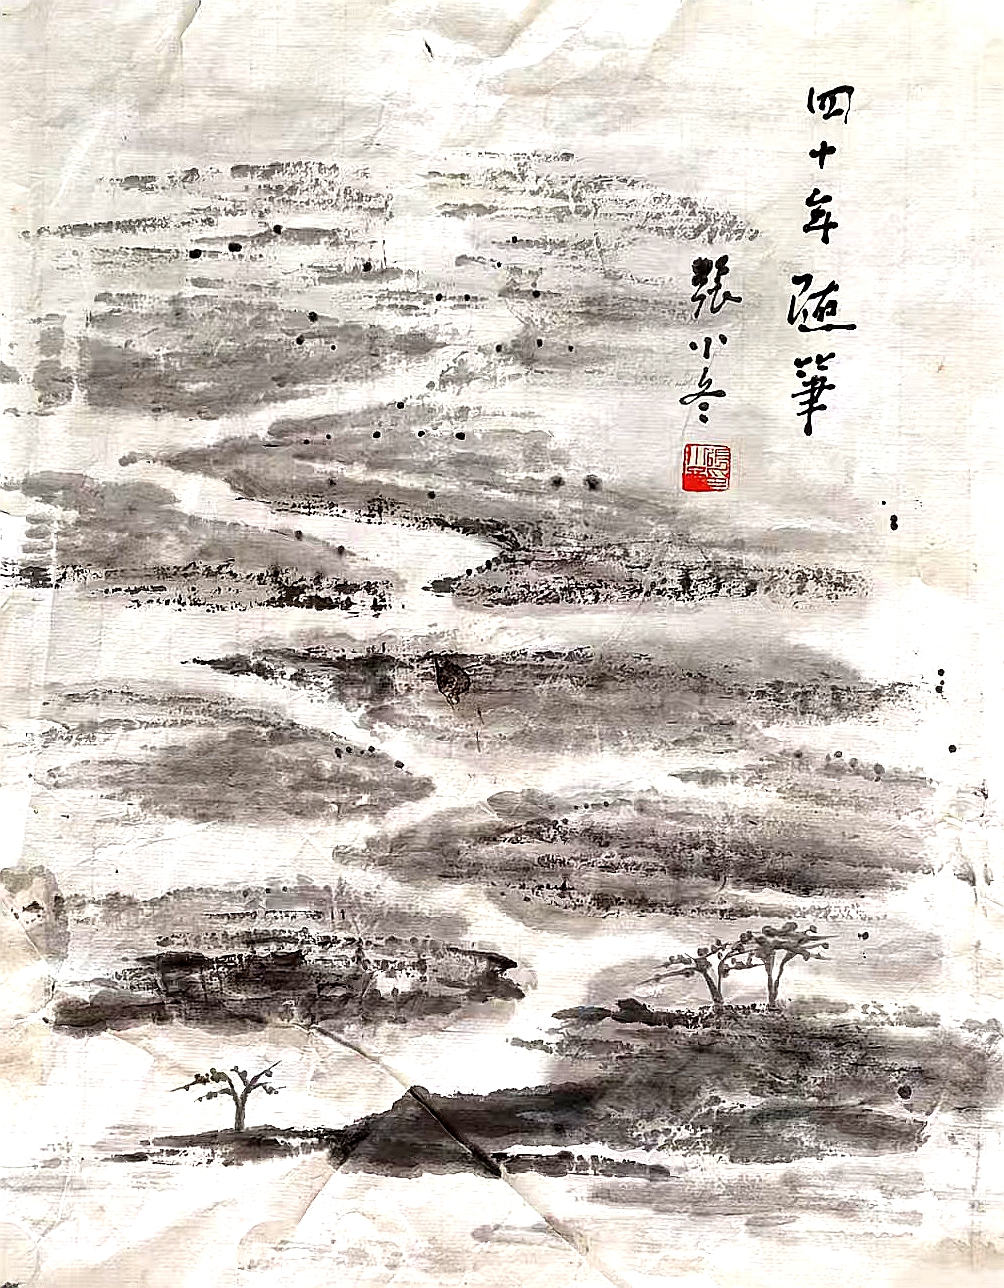 四十年随筆
張小冬